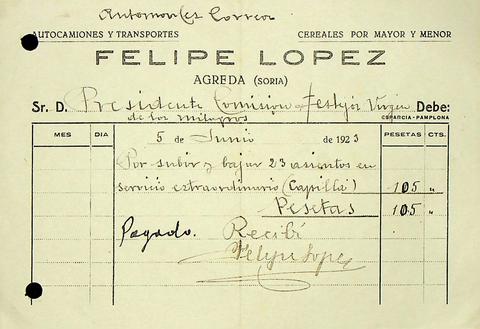 Automoviles Correos
AUTOCAMIONES Y TRANSPORTES CEREALES POR MAYOR Y MENOR
FELIPE LOPEZ
AGREDA (SORIA)
Sr. D. Presidente Comision de Festejos Virgen Debe:
de los milagros ESPARCIA-PAMPLONA
MES DIA 5 de Junio 1923 PESETAS CTS.
Por subir y bajar 23 asientos en
servicio extraordinario (Capilla) 105 "
Pesetas 105 "
Pagado. Recibí
Felipe Lopez